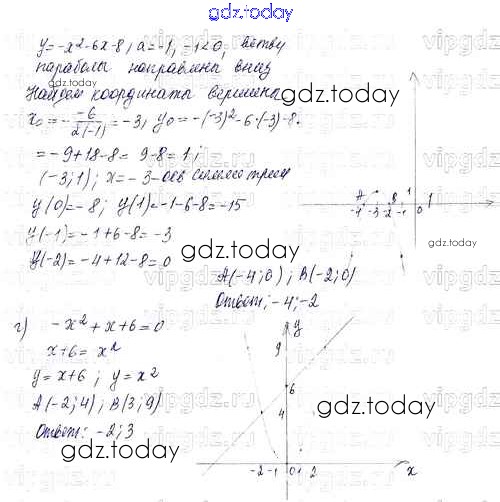 gdz.today
y=-x²-6x-8, a=-1, -1<0, ветви
параболы направлены вниз
Найдем координаты вершины
gdz.today
x₀=-\frac{-6}{2(-1)}=-3, y₀=-(-3)²-6·(-3)-8.
=-9+18-8=9-8=1;
(-3;1); x=-3-ось симметрии
y(0)=-8; y(1)=-1-6-8=-15
y(-1)=-1+6-8=-3
y(-2)=-4+12-8=0
A B 1
-4 -3 -2 -1 0 1
gdz.today
gdz.today
A(-4;0); B(-2;0)
Ответ: -4; -2
г) -x²+x+6=0
x+6=x²
y=x+6; y=x²
A(-2;4), B(3;9)
Ответ: -2; 3
gdz.today
y
9
6
4
gdz.today
-2 -1 0 1 2 x
gdz.today
vipgdz.ru